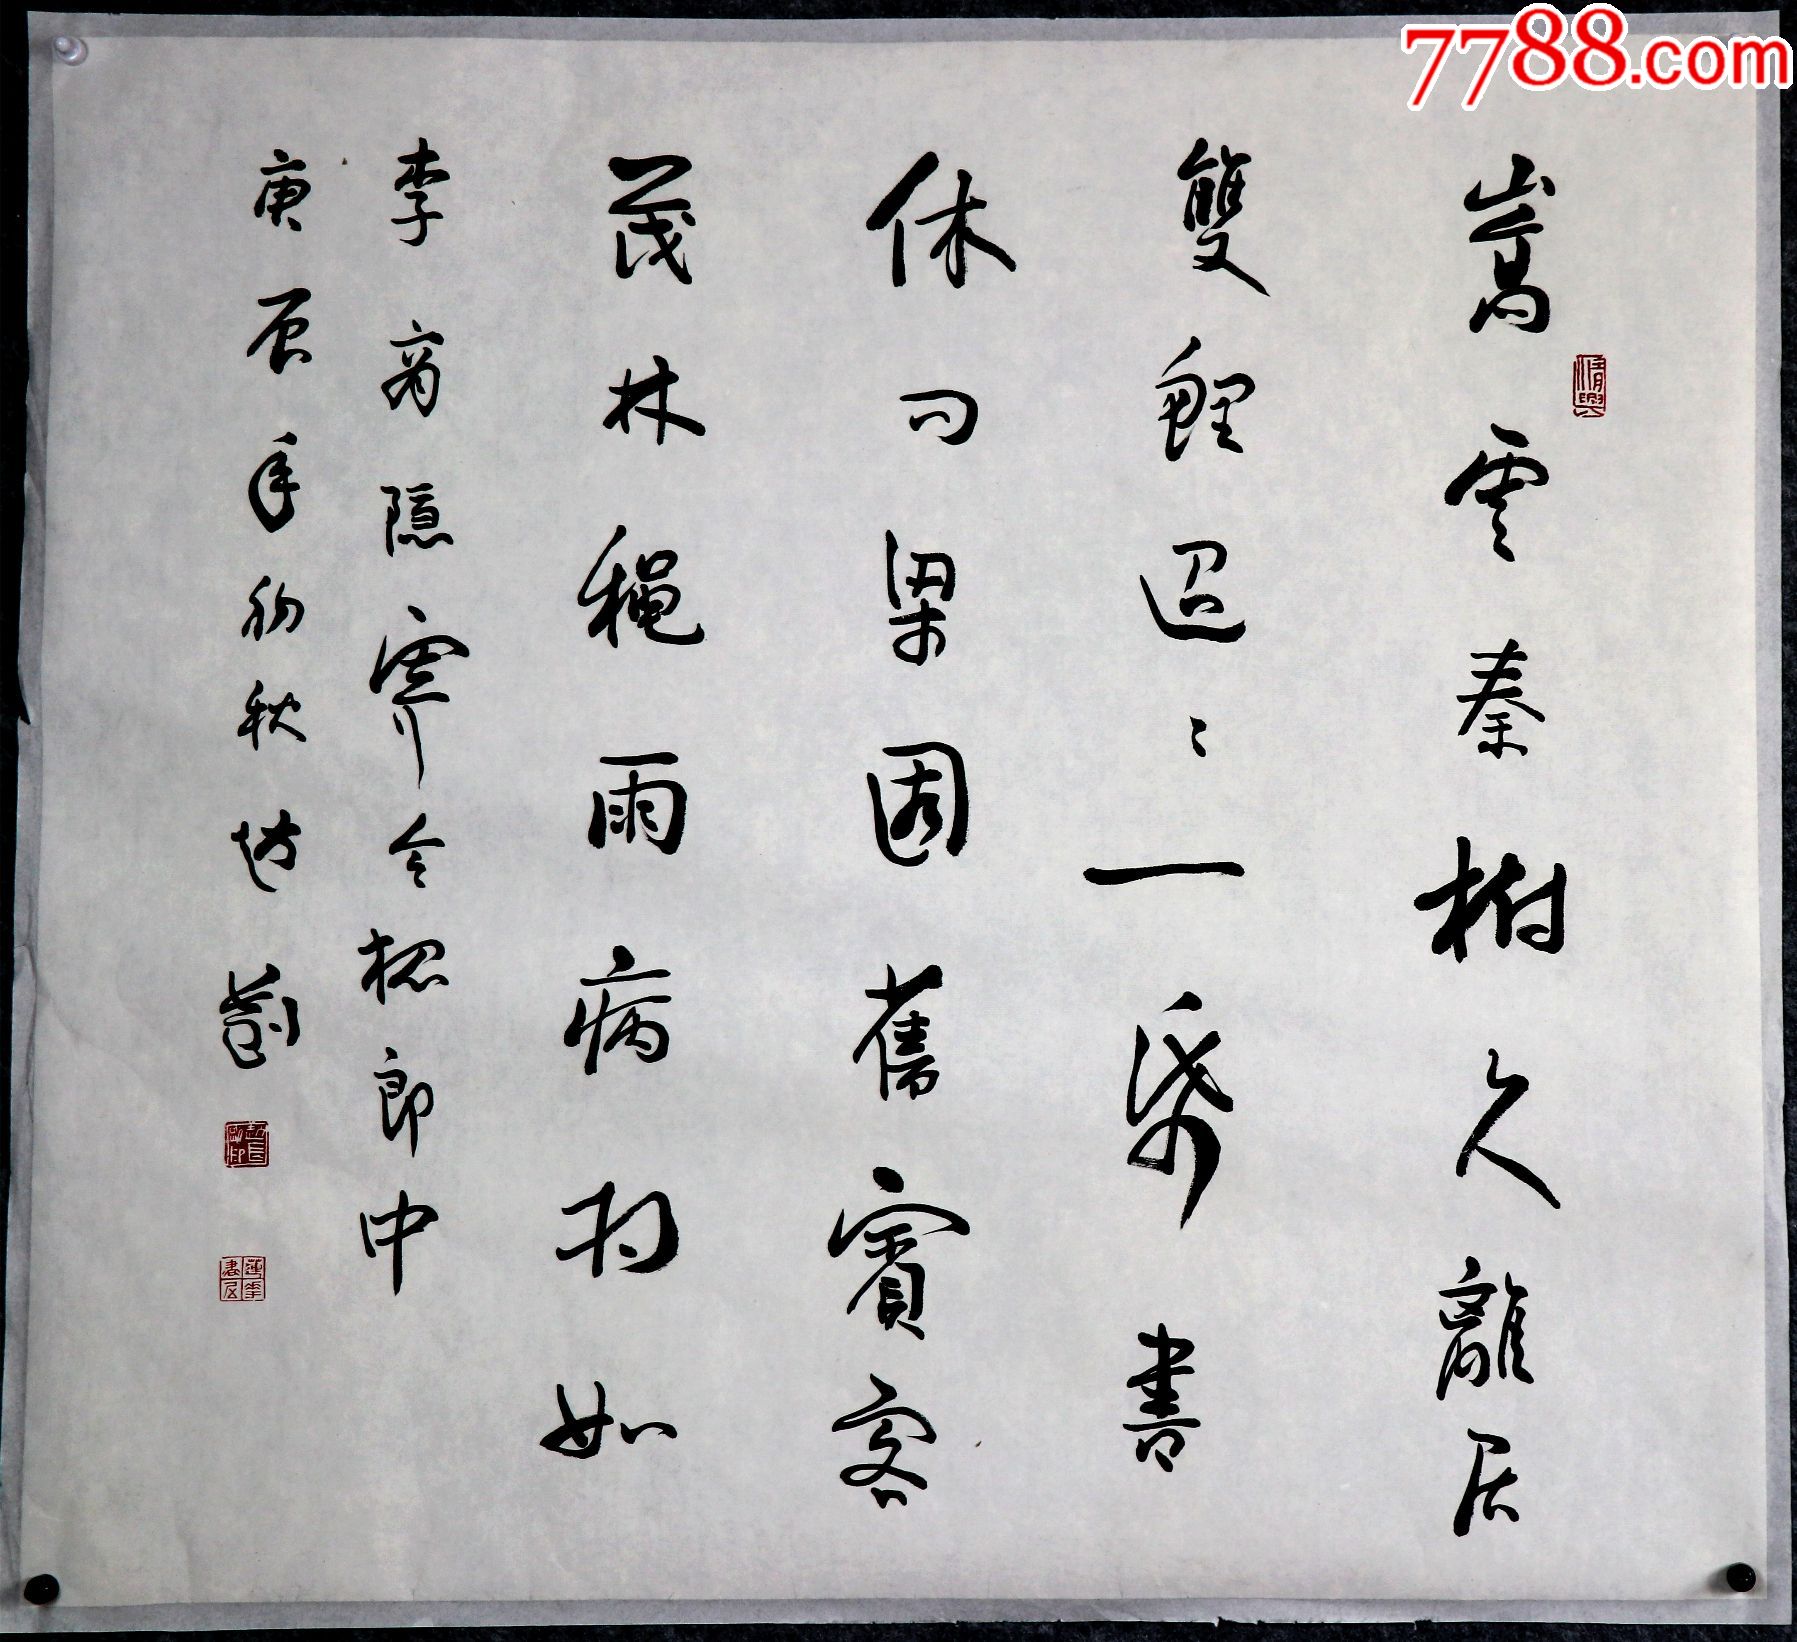 7788.com
嵩雲秦樹久離居
雙鯉迢迢一紙書
休問梁園舊賓客
茂林穐雨病相如
李商隱寄令狐郎中
庚辰年初秋 趙